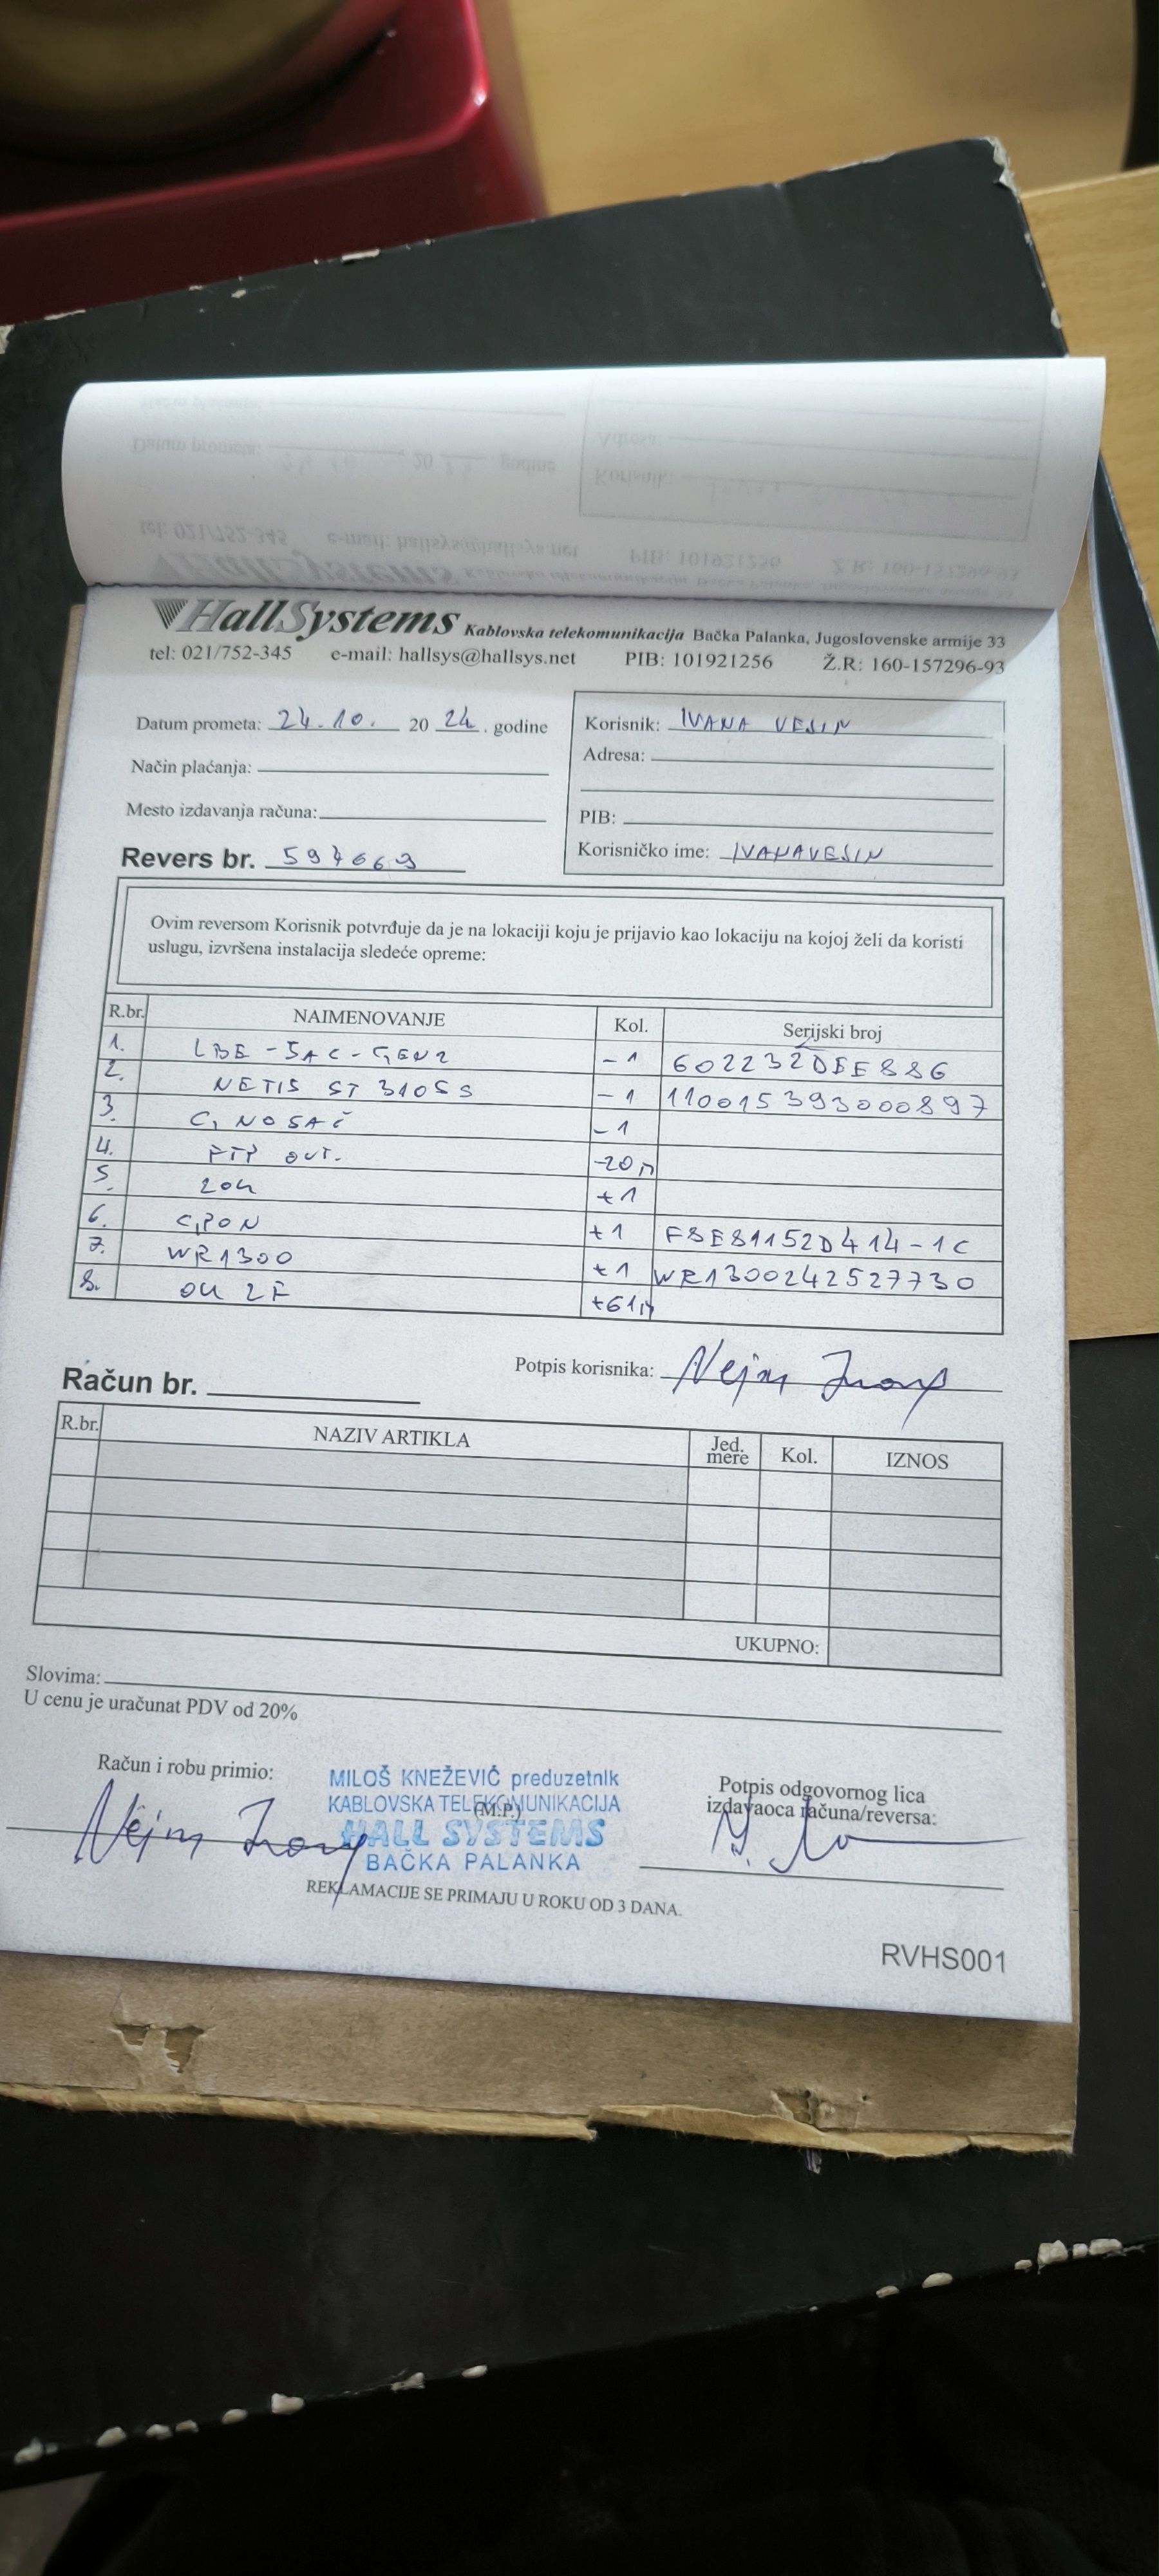 HallSystems Kablovska telekomunikacija Bačka Palanka, Jugoslovenske armije 33
tel: 021/752-345 e-mail: hallsys@hallsys.net PIB: 101921256 Ž.R: 160-157296-93
Datum prometa: 24.10. 20 24. godine
Način plaćanja:
Mesto izdavanja računa:
Revers br. 594669
Korisnik: IVANA VESIN
Adresa:
PIB:
Korisničko ime: IVANAVESIN
Ovim reversom Korisnik potvrđuje da je na lokaciji koju je prijavio kao lokaciju na kojoj želi da koristi
uslugu, izvršena instalacija sledeće opreme:
R.br. NAIMENOVANJE Kol. Serijski broj
1. LBE-5AC-GEN2 -1 602232DEE886
2. NETIS ST3105S -1 110015393000897
3. G, NOSAČ -1
4. FTP OUT. -20m
5. ZOK +1
6. GPON +1 F8E81152D414-1C
7. WR1300 +1 WR1300242527730
8. OK 2F +61m
Potpis korisnika:
Račun br.
R.br. NAZIV ARTIKLA Jed. mere Kol. IZNOS
UKUPNO:
Slovima:
U cenu je uračunat PDV od 20%
Račun i robu primio:
MILOŠ KNEŽEVIĆ preduzetnik
KABLOVSKA TELEKOMUNIKACIJA
(M.P.)
HALL SYSTEMS
BAČKA PALANKA
Potpis odgovornog lica
izdavaoca računa/reversa:
REKLAMACIJE SE PRIMAJU U ROKU OD 3 DANA.
RVHS001